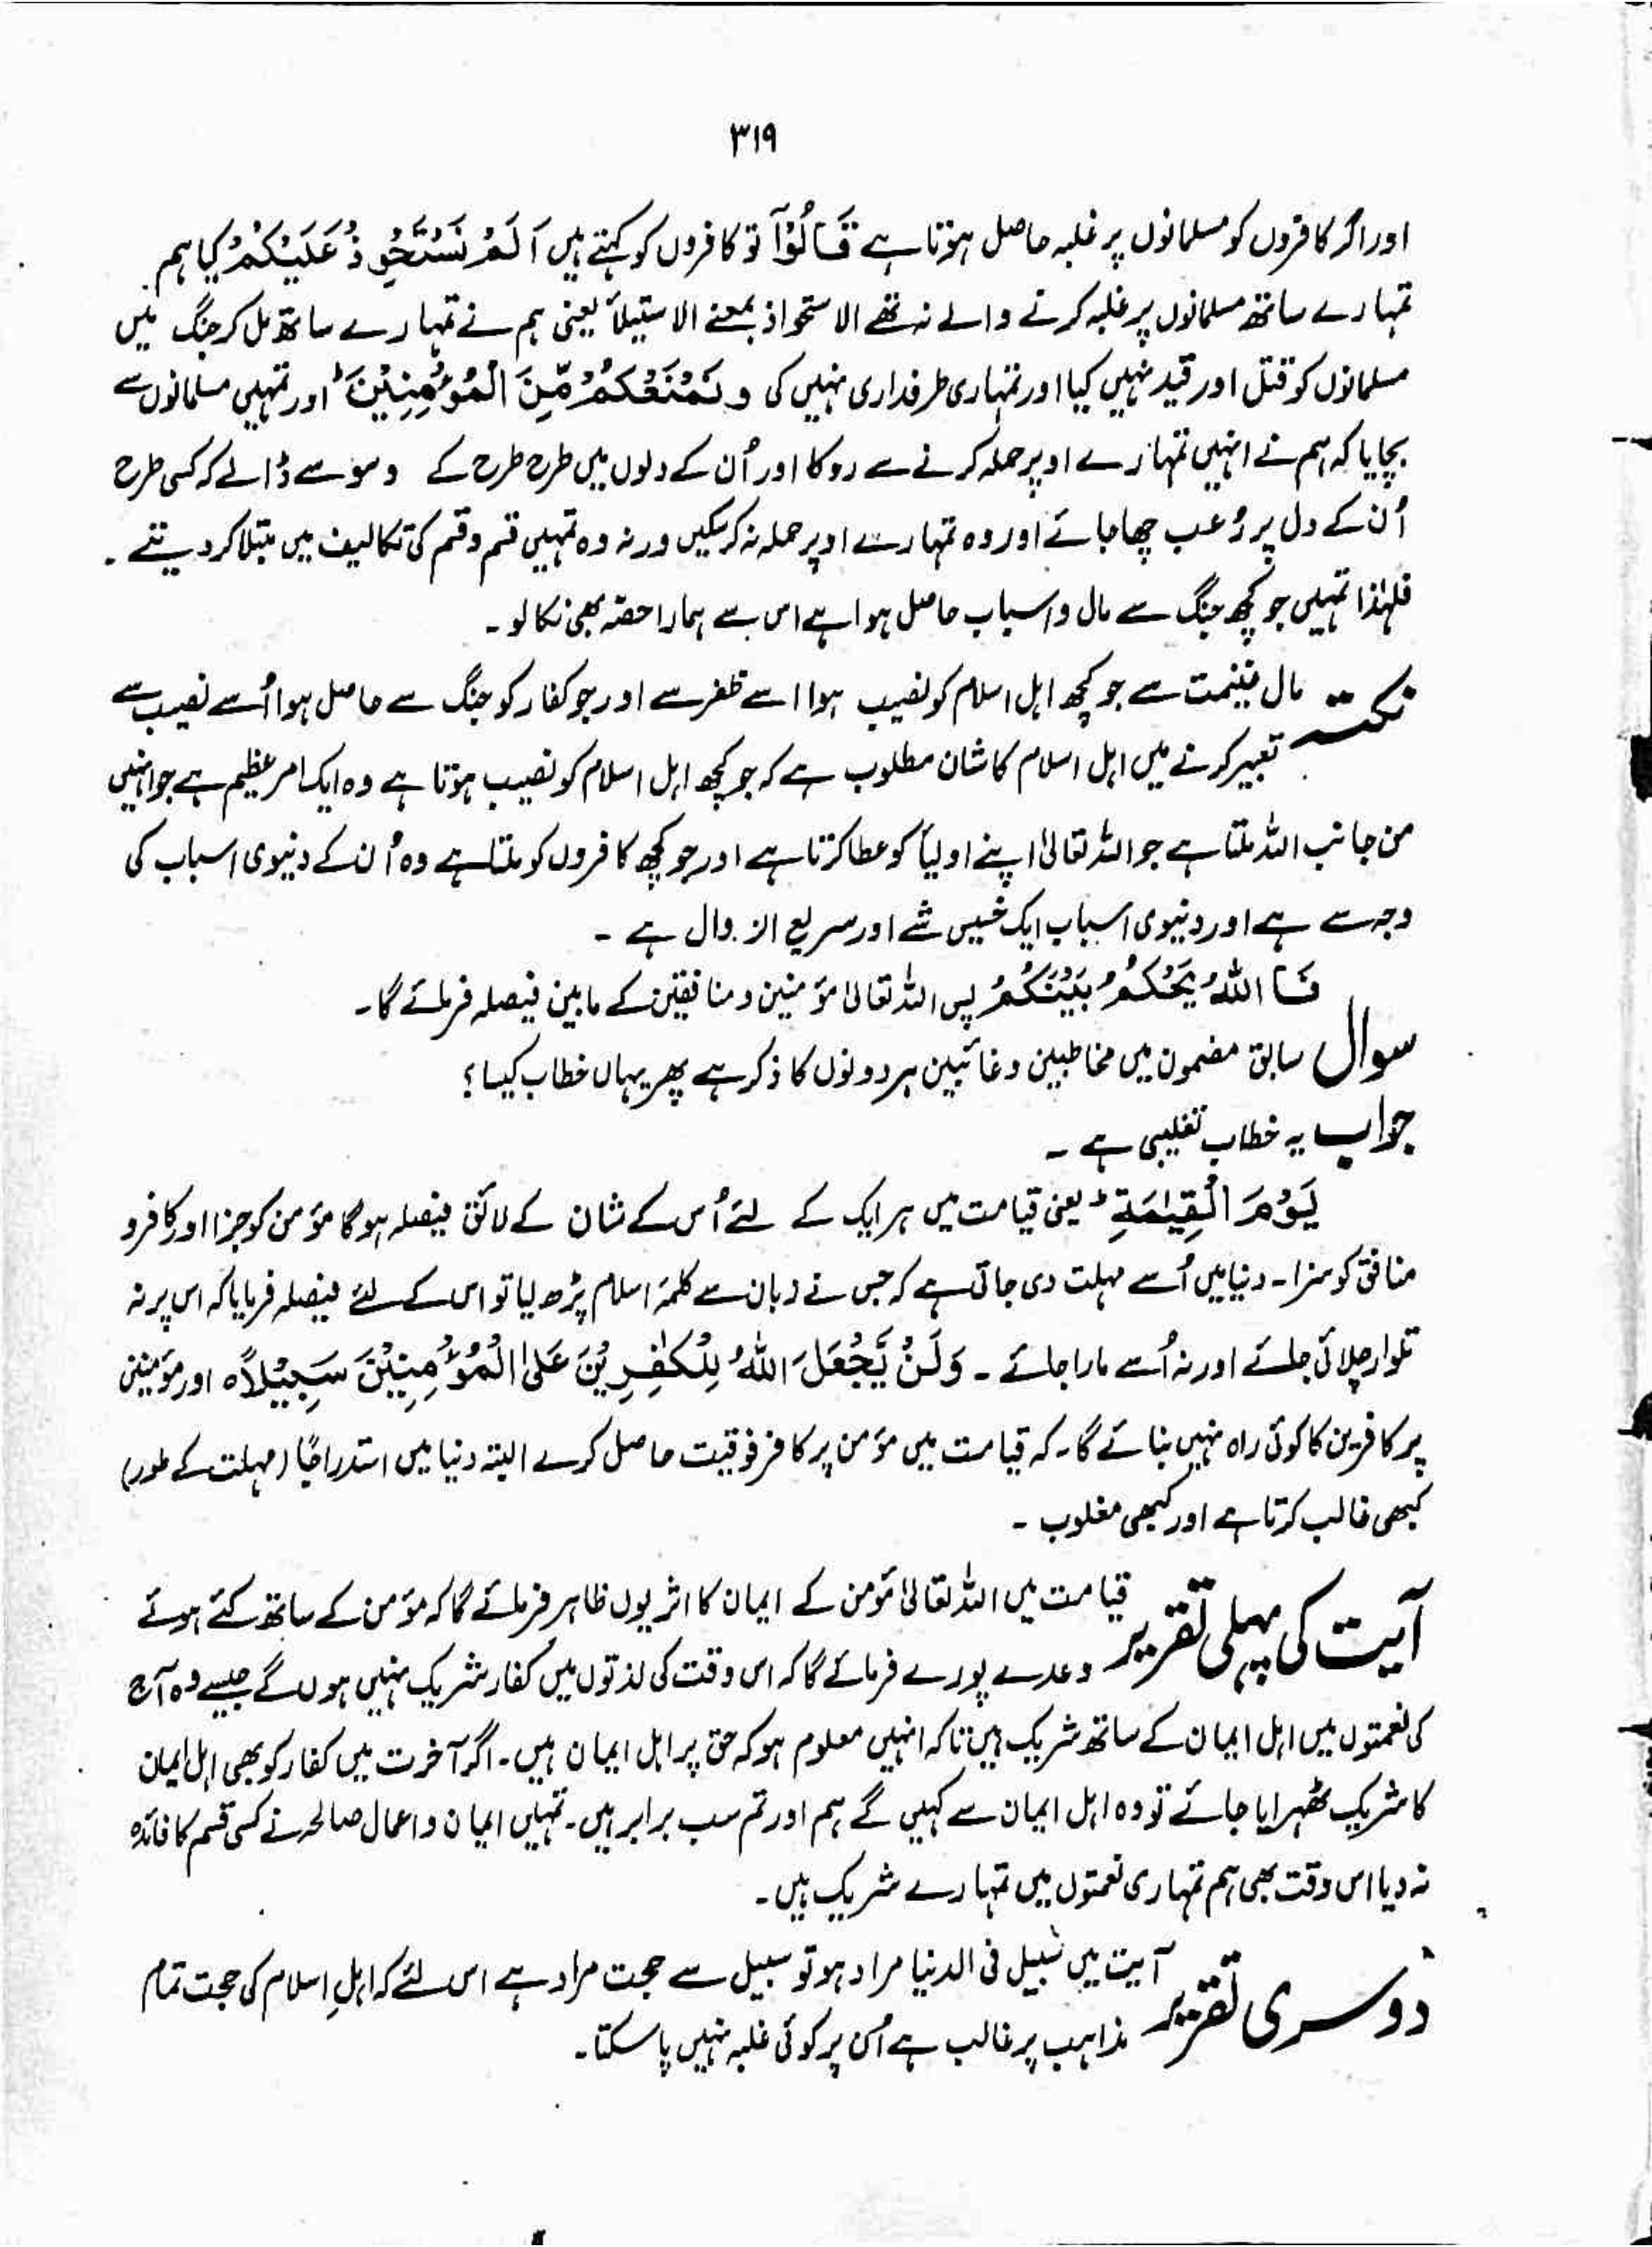 ۳۱۹
اور اگر کافروں کو مسلمانوں پر غلبہ حاصل ہوتا ہے قَالُوْٓا تو کافروں کو کہتے ہیں اَلَمْ نَسْتَحْوِذْ عَلَيْكُمْ کیا ہم
تمہارے ساتھ مسلمانوں پر غلبہ کرنے والے نہ تھے الاستحواذ بمعنے الاستیلاً یعنی ہم نے تمہارے ساتھ مل کر جنگ میں
مسلمانوں کو قتل اور قید نہیں کیا اور تمہاری طرفداری نہیں کی وَنَمْنَعْكُمْ مِّنَ الْمُؤْمِنِيْنَ ؕ اور تمہیں مسلمانوں سے
بچایا کہ ہم نے انہیں تمہارے اوپر حملہ کرنے سے روکا اور اُن کے دلوں میں طرح طرح کے وسوسے ڈالے کہ کسی طرح
اُن کے دل پر رُعب چھا جائے اور وہ تمہارے اوپر حملہ نہ کر سکیں ورنہ وہ تمہیں قسم و قسم کی تکالیف میں مبتلا کر دیتے ۔
فلہٰذا تمہیں جو کچھ جنگ سے مال و اسباب حاصل ہوا ہے اس سے ہمارا حصّہ بھی نکالو ۔
نکتہ مال غنیمت سے جو کچھ اہل اسلام کو نصیب ہوا اسے ظفر سے اور جو کفار کو جنگ سے حاصل ہوا اُسے نصیب سے
تعبیر کرنے میں اہل اسلام کا شان مطلوب ہے کہ جو کچھ اہل اسلام کو نصیب ہوتا ہے وہ ایک امر عظیم ہے جو انہیں
من جانب اللہ ملتا ہے جو اللہ تعالیٰ اپنے اولیاً کو عطا کرتا ہے اور جو کچھ کافروں کو ملتا ہے وہ اُن کے دنیوی اسباب کی
وجہ سے ہے اور دنیوی اسباب ایک خسیس شے اور سریع الزوال ہے ۔
فَا اللّٰهُ يَحْكُمُ بَيْنَكُمْ پس اللہ تعالیٰ مؤمنین و منافقین کے مابین فیصلہ فرمائے گا ۔
سوال سابق مضمون میں مخاطبین و غائبین ہر دونوں کا ذکر ہے پھر یہاں خطاب کیسا ؟
جواب یہ خطاب تغلیبی ہے ۔
يَوْمَ الْقِيٰمَةِ ؕ یعنی قیامت میں ہر ایک کے لئے اُس کے شان کے لائق فیصلہ ہوگا مؤمن کو جزا اور کافر و
منافق کو سزا ۔ دنیا میں اُسے مہلت دی جاتی ہے کہ جس نے زبان سے کلمۂ اسلام پڑھ لیا تو اس کے لئے فیصلہ فرمایا کہ اس پر نہ
تلوار چلائی جائے اور نہ اُسے مارا جائے ۔ وَلَنْ يَّجْعَلَ اللّٰهُ لِلْكٰفِرِيْنَ عَلَى الْمُؤْمِنِيْنَ سَبِيْلًا ہ اور مؤمنین
پر کافرین کا کوئی راہ نہیں بنائے گا ۔ کہ قیامت میں مؤمن پر کافر فوقیت حاصل کرے البتہ دنیا میں استدراجًا (مہلت کے طور)
کبھی غالب کرتا ہے اور کبھی مغلوب ۔
آیت کی پہلی تقریر قیامت میں اللہ تعالیٰ مؤمن کے ایمان کا اثر یوں ظاہر فرمائے گا کہ مؤمن کے ساتھ کئے ہوئے
وعدے پورے فرمائے گا کہ اس وقت کی لذتوں میں کفار شریک نہیں ہوں گے جیسے وہ آج
کی نعمتوں میں اہل ایمان کے ساتھ شریک ہیں تاکہ انہیں معلوم ہو کہ حق پر اہل ایمان ہیں ۔ اگر آخرت میں کفار کو بھی اہل ایمان
کا شریک ٹھہرایا جائے تو وہ اہل ایمان سے کہیں گے ہم اور تم سب برابر ہیں ۔ تمہیں ایمان و اعمال صالحہ نے کسی قسم کا فائدہ
نہ دیا اس وقت بھی ہم تمہاری نعمتوں میں تمہارے شریک ہیں ۔
دوسری تقریر آیت میں سبیل فی الدنیا مراد ہو تو سبیل سے حجت مراد ہے اس لئے کہ اہلِ اسلام کی حجت تمام
مذاہب پر غالب ہے اُس پر کوئی غلبہ نہیں پا سکتا ۔